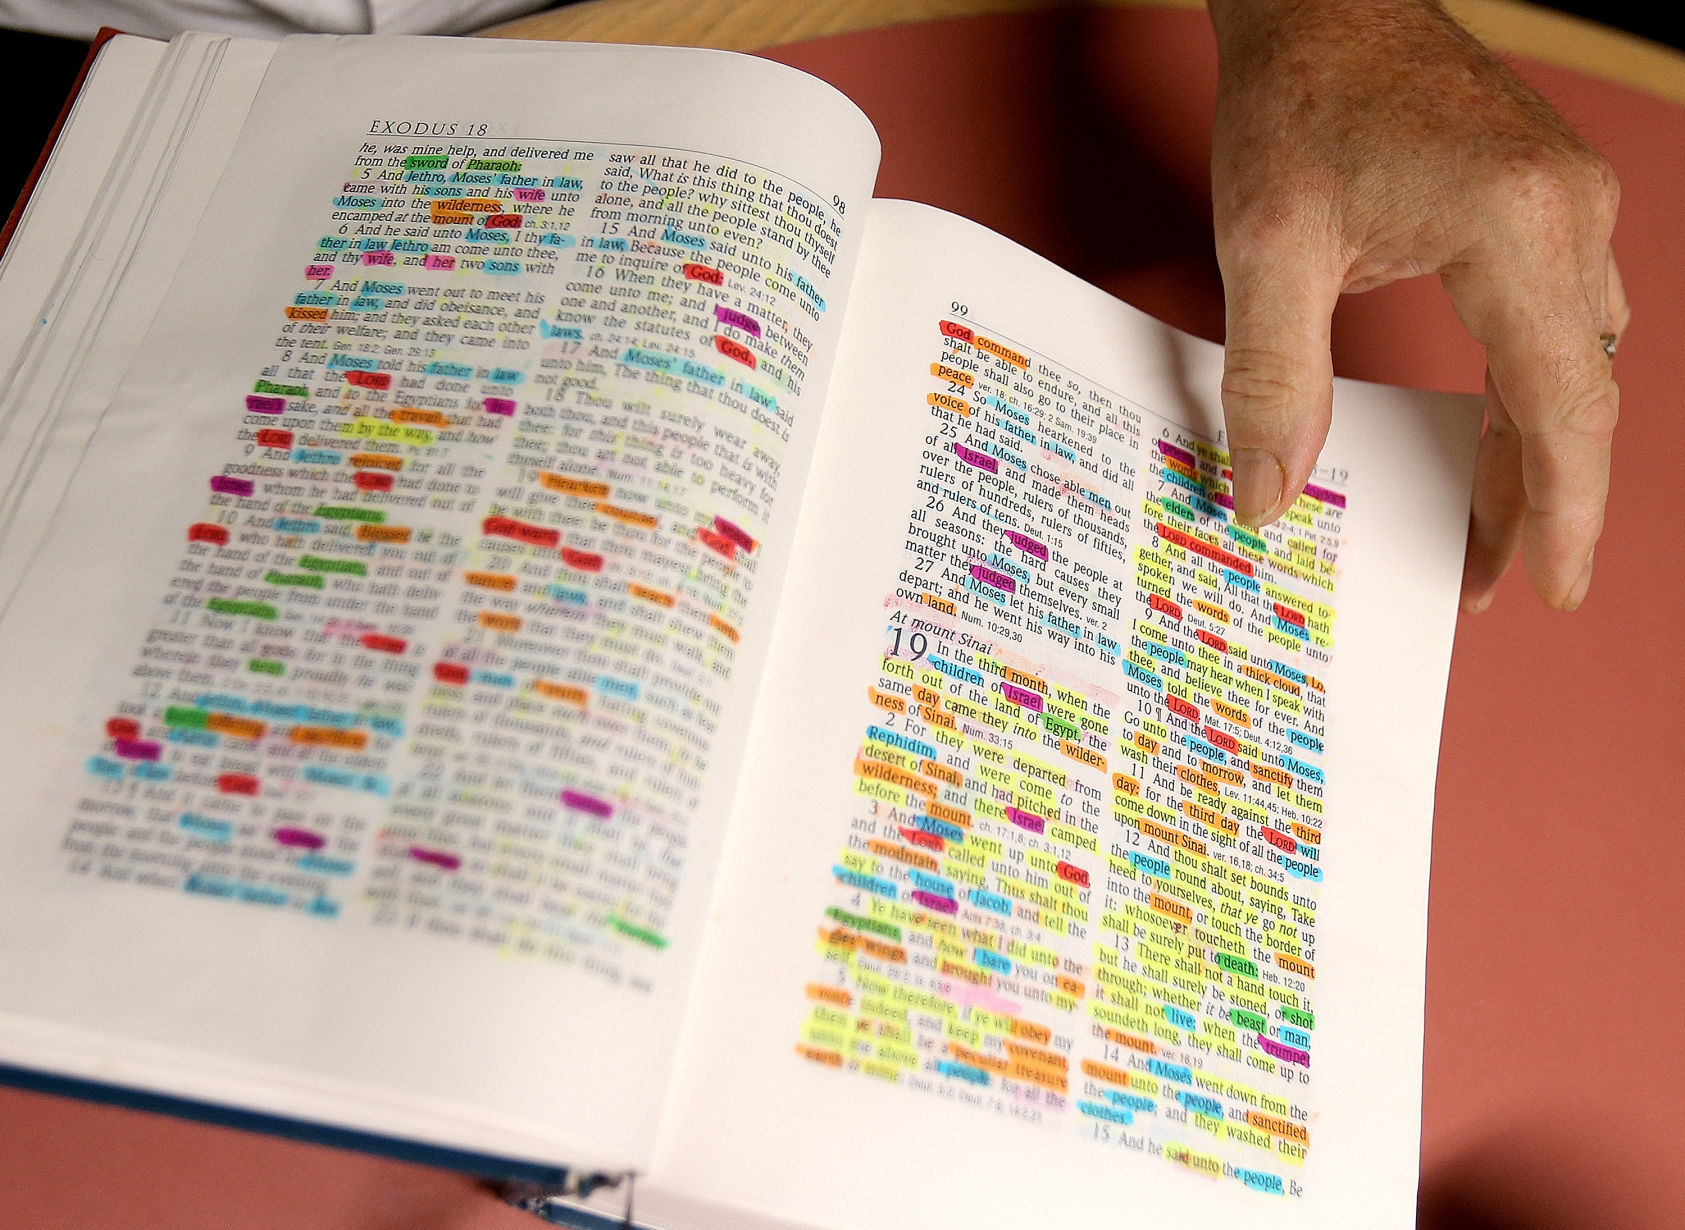 EXODUS 18
98
he, was mine help, and delivered me
from the sword of Pharaoh:
5 And Jethro, Moses' father in law,
came with his sons and his wife unto
Moses into the wilderness, where he
encamped at the mount of God: ch. 3:1,12
6 And he said unto Moses, I thy fa-
ther in law Jethro am come unto thee,
and thy wife, and her two sons with
her.
7 And Moses went out to meet his
father in law, and did obeisance, and
kissed him; and they asked each other
of their welfare; and they came into
the tent. Gen. 18:2; Gen. 29:13
8 And Moses told his father in law
all that the LORD had done unto
Pharaoh, and to the Egyptians for Is-
rael's sake, and all the travail that had
come upon them by the way, and how
the LORD delivered them.
9 And Jethro rejoiced for all the
goodness which the LORD had done to
Israel, whom he had delivered out of
the hand of the Egyptians.
10 And Jethro said, Blessed be the
LORD, who hath delivered you out of
the hand of the Egyptians, and out of
the hand of Pharaoh, who hath deliv-
ered the people from under the hand
of the Egyptians.
11 Now I know that the LORD is
greater than all gods: for in the thing
wherein they dealt proudly he was
above them.
12 And Jethro, Moses' father in law,
took a burnt offering and sacrifices for
God: and Aaron came, and all the elders
of Israel, to eat bread with Moses' fa-
ther in law before God.
13 ¶ And it came to pass on the
morrow, that Moses sat to judge the
people: and the people stood by Moses
from the morning unto the evening.
14 And when Moses' father in law
saw all that he did to the people, he
said, What is this thing that thou doest
to the people? why sittest thou thyself
alone, and all the people stand by thee
from morning unto even?
15 And Moses said unto his father
in law, Because the people come unto
me to inquire of God: Lev. 24:12
16 When they have a matter, they
come unto me; and I judge between
one and another, and I do make them
know the statutes of God, and his
laws. ch. 24:14; Lev. 24:15
17 And Moses' father in law said
unto him, The thing that thou doest is
not good.
18 Thou wilt surely wear away,
both thou, and this people that is with
thee: for this thing is too heavy for
thee; thou art not able to perform it
thyself alone. Num. 11:14,17
19 Hearken now unto my voice, I
will give thee counsel, and God shall
be with thee: Be thou for the people to
God-ward, that thou mayest bring the
causes unto God:
20 And thou shalt teach them ordi-
nances and laws, and shalt shew them
the way wherein they must walk, and
the work that they must do.
21 Moreover thou shalt provide out
of all the people able men, such as fear
God, men of truth, hating covetous-
ness; and place such over them, to be
rulers of thousands, and rulers of hun-
dreds, rulers of fifties, and rulers of
tens:
22 And let them judge the people
at all seasons: and it shall be, that
every great matter they shall bring
unto thee, but every small matter
they shall judge:
23 If thou shalt do this thing, and
99
God command thee so, then thou
shalt be able to endure, and all this
people shall also go to their place in
peace. ver. 18; ch. 16:29; 2 Sam. 19:39
24 So Moses hearkened to the
voice of his father in law, and did all
that he had said.
25 And Moses chose able men out
of all Israel, and made them heads
over the people, rulers of thousands,
rulers of hundreds, rulers of fifties,
and rulers of tens. Deut. 1:15
26 And they judged the people at
all seasons: the hard causes they
brought unto Moses, but every small
matter they judged themselves. ver. 2
27 And Moses let his father in law
depart; and he went his way into his
own land. Num. 10:29,30
At mount Sinai
19 In the third month, when the
children of Israel were gone
forth out of the land of Egypt, the
same day came they into the wilder-
ness of Sinai. Num. 33:15
2 For they were departed from
Rephidim, and were come to the
desert of Sinai, and had pitched in the
wilderness; and there Israel camped
before the mount. ch. 17:1,8; ch. 3:1,12
3 And Moses went up unto God,
and the LORD called unto him out of
the mountain, saying, Thus shalt thou
say to the house of Jacob, and tell the
children of Israel; Acts 7:38; ch. 3:4
4 Ye have seen what I did unto the
Egyptians, and how I bare you on ea-
gles' wings, and brought you unto my-
self.
5 Now therefore, if ye will obey my
voice indeed, and keep my covenant,
then ye shall be a peculiar treasure
unto me above all people: for all the
earth is mine:
-19
6 And ye shall
the words which
the children of
7 And Moses came and called for
the elders of the people, and laid be-
fore their faces all these words which
the LORD commanded him.
8 And all the people answered to-
gether, and said, All that the LORD hath
spoken we will do. And Moses re-
turned the words of the people unto
the LORD. Deut. 5:27
9 And the LORD said unto Moses, Lo,
I come unto thee in a thick cloud, that
the people may hear when I speak with
thee, and believe thee for ever. And
Moses told the words of the people
unto the LORD. Mat. 17:5; Deut. 4:12,36
10 ¶ And the LORD said unto Moses,
Go unto the people, and sanctify them
to day and to morrow, and let them
wash their clothes, Lev. 11:44,45; Heb. 10:22
11 And be ready against the third
day: for the third day the LORD will
come down in the sight of all the people
upon mount Sinai. ver. 16,18; ch. 34:5
12 And thou shalt set bounds unto
the people round about, saying, Take
heed to yourselves, that ye go not up
into the mount, or touch the border of
it: whosoever toucheth the mount
shall be surely put to death: Heb. 12:20
13 There shall not a hand touch it,
but he shall surely be stoned, or shot
through; whether it be beast or man,
it shall not live: when the trumpet
soundeth long, they shall come up to
the mount. ver. 16,19
14 And Moses went down from the
mount unto the people, and sanctified
the people; and they washed their
clothes.
15 And he said unto the people, Be